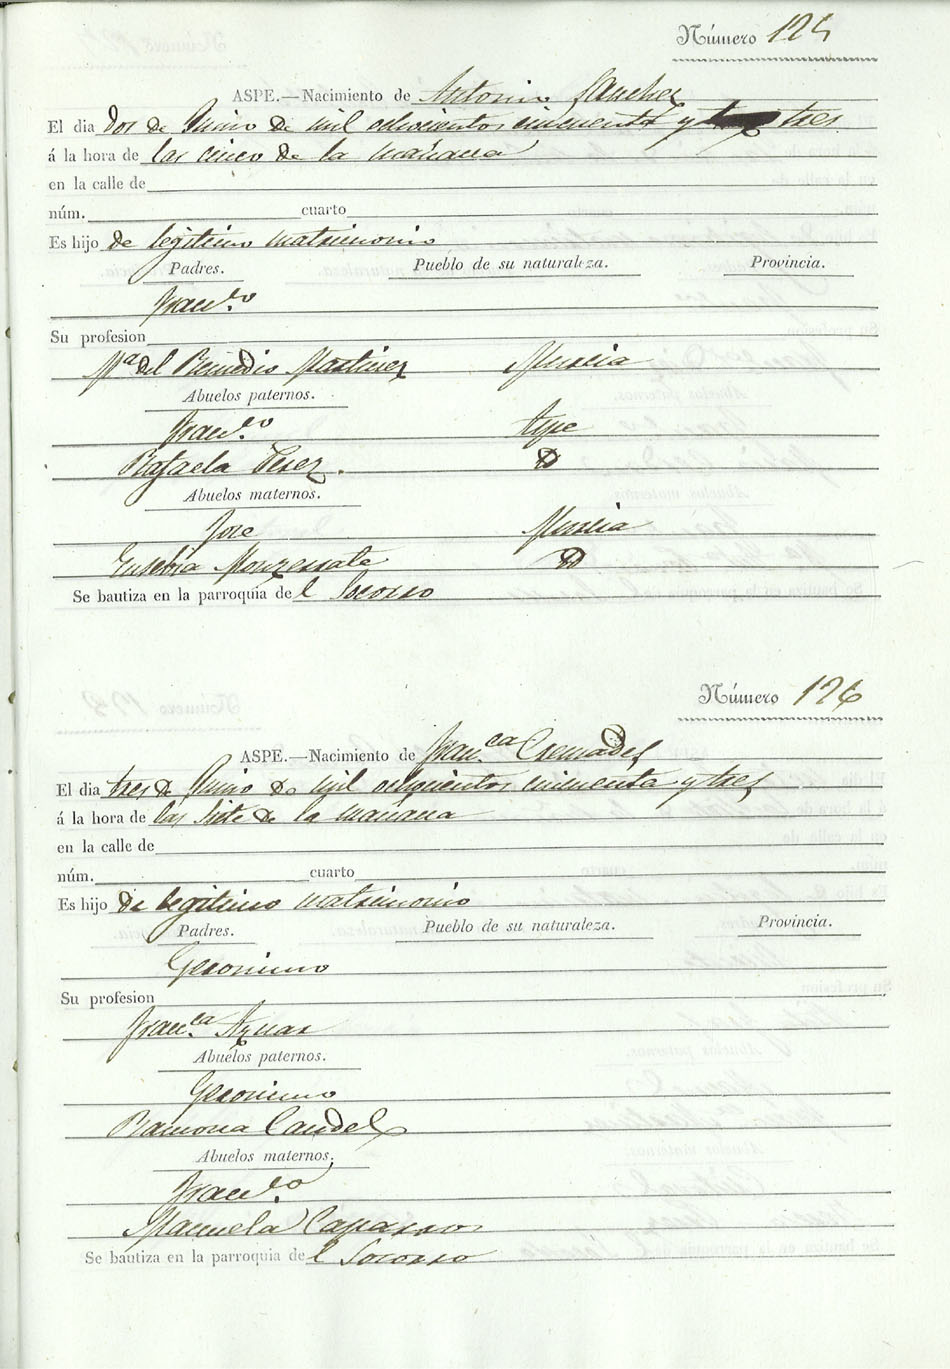 Número 125
ASPE.—Nacimiento de Antonio Sanchez
El dia dos de Junio de mil ochocientos cincuenta y tres
á la hora de las cinco de la mañana
en la calle de
núm. cuarto
Es hijo de legitimo matrimonio
Padres. Pueblo de su naturaleza. Provincia.
Fran.co
Su profesion
Mª del Remedio Martinez Murcia
Abuelos paternos.
Fran.co Aspe
Rafaela Perez. D
Abuelos maternos.
Jose Murcia
Eusebia Monzerrate D
Se bautiza en la parroquia del Socorro
Número 126
ASPE.—Nacimiento de Fran.ca Cremades
El dia tres de Junio de mil ochocientos cincuenta y tres
á la hora de las siete de la mañana
en la calle de
núm. cuarto
Es hijo de legitimo matrimonio
Padres. Pueblo de su naturaleza. Provincia.
Geronimo
Su profesion
Fran.ca Aznar
Abuelos paternos.
Geronimo
Ramona Candel
Abuelos maternos.
Fran.co
Manuela Caparros
Se bautiza en la parroquia del Socorro